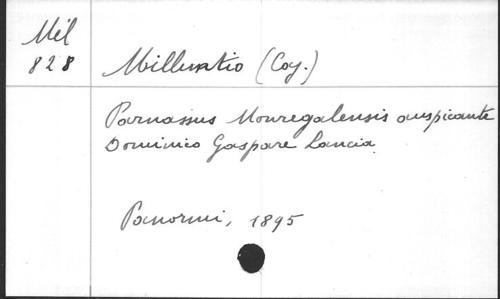 Mil
828
Millunzio (Coj.)
Parnassus Monregalensis auspicante
Dominico Gaspare Lancia
Panormi, 1895